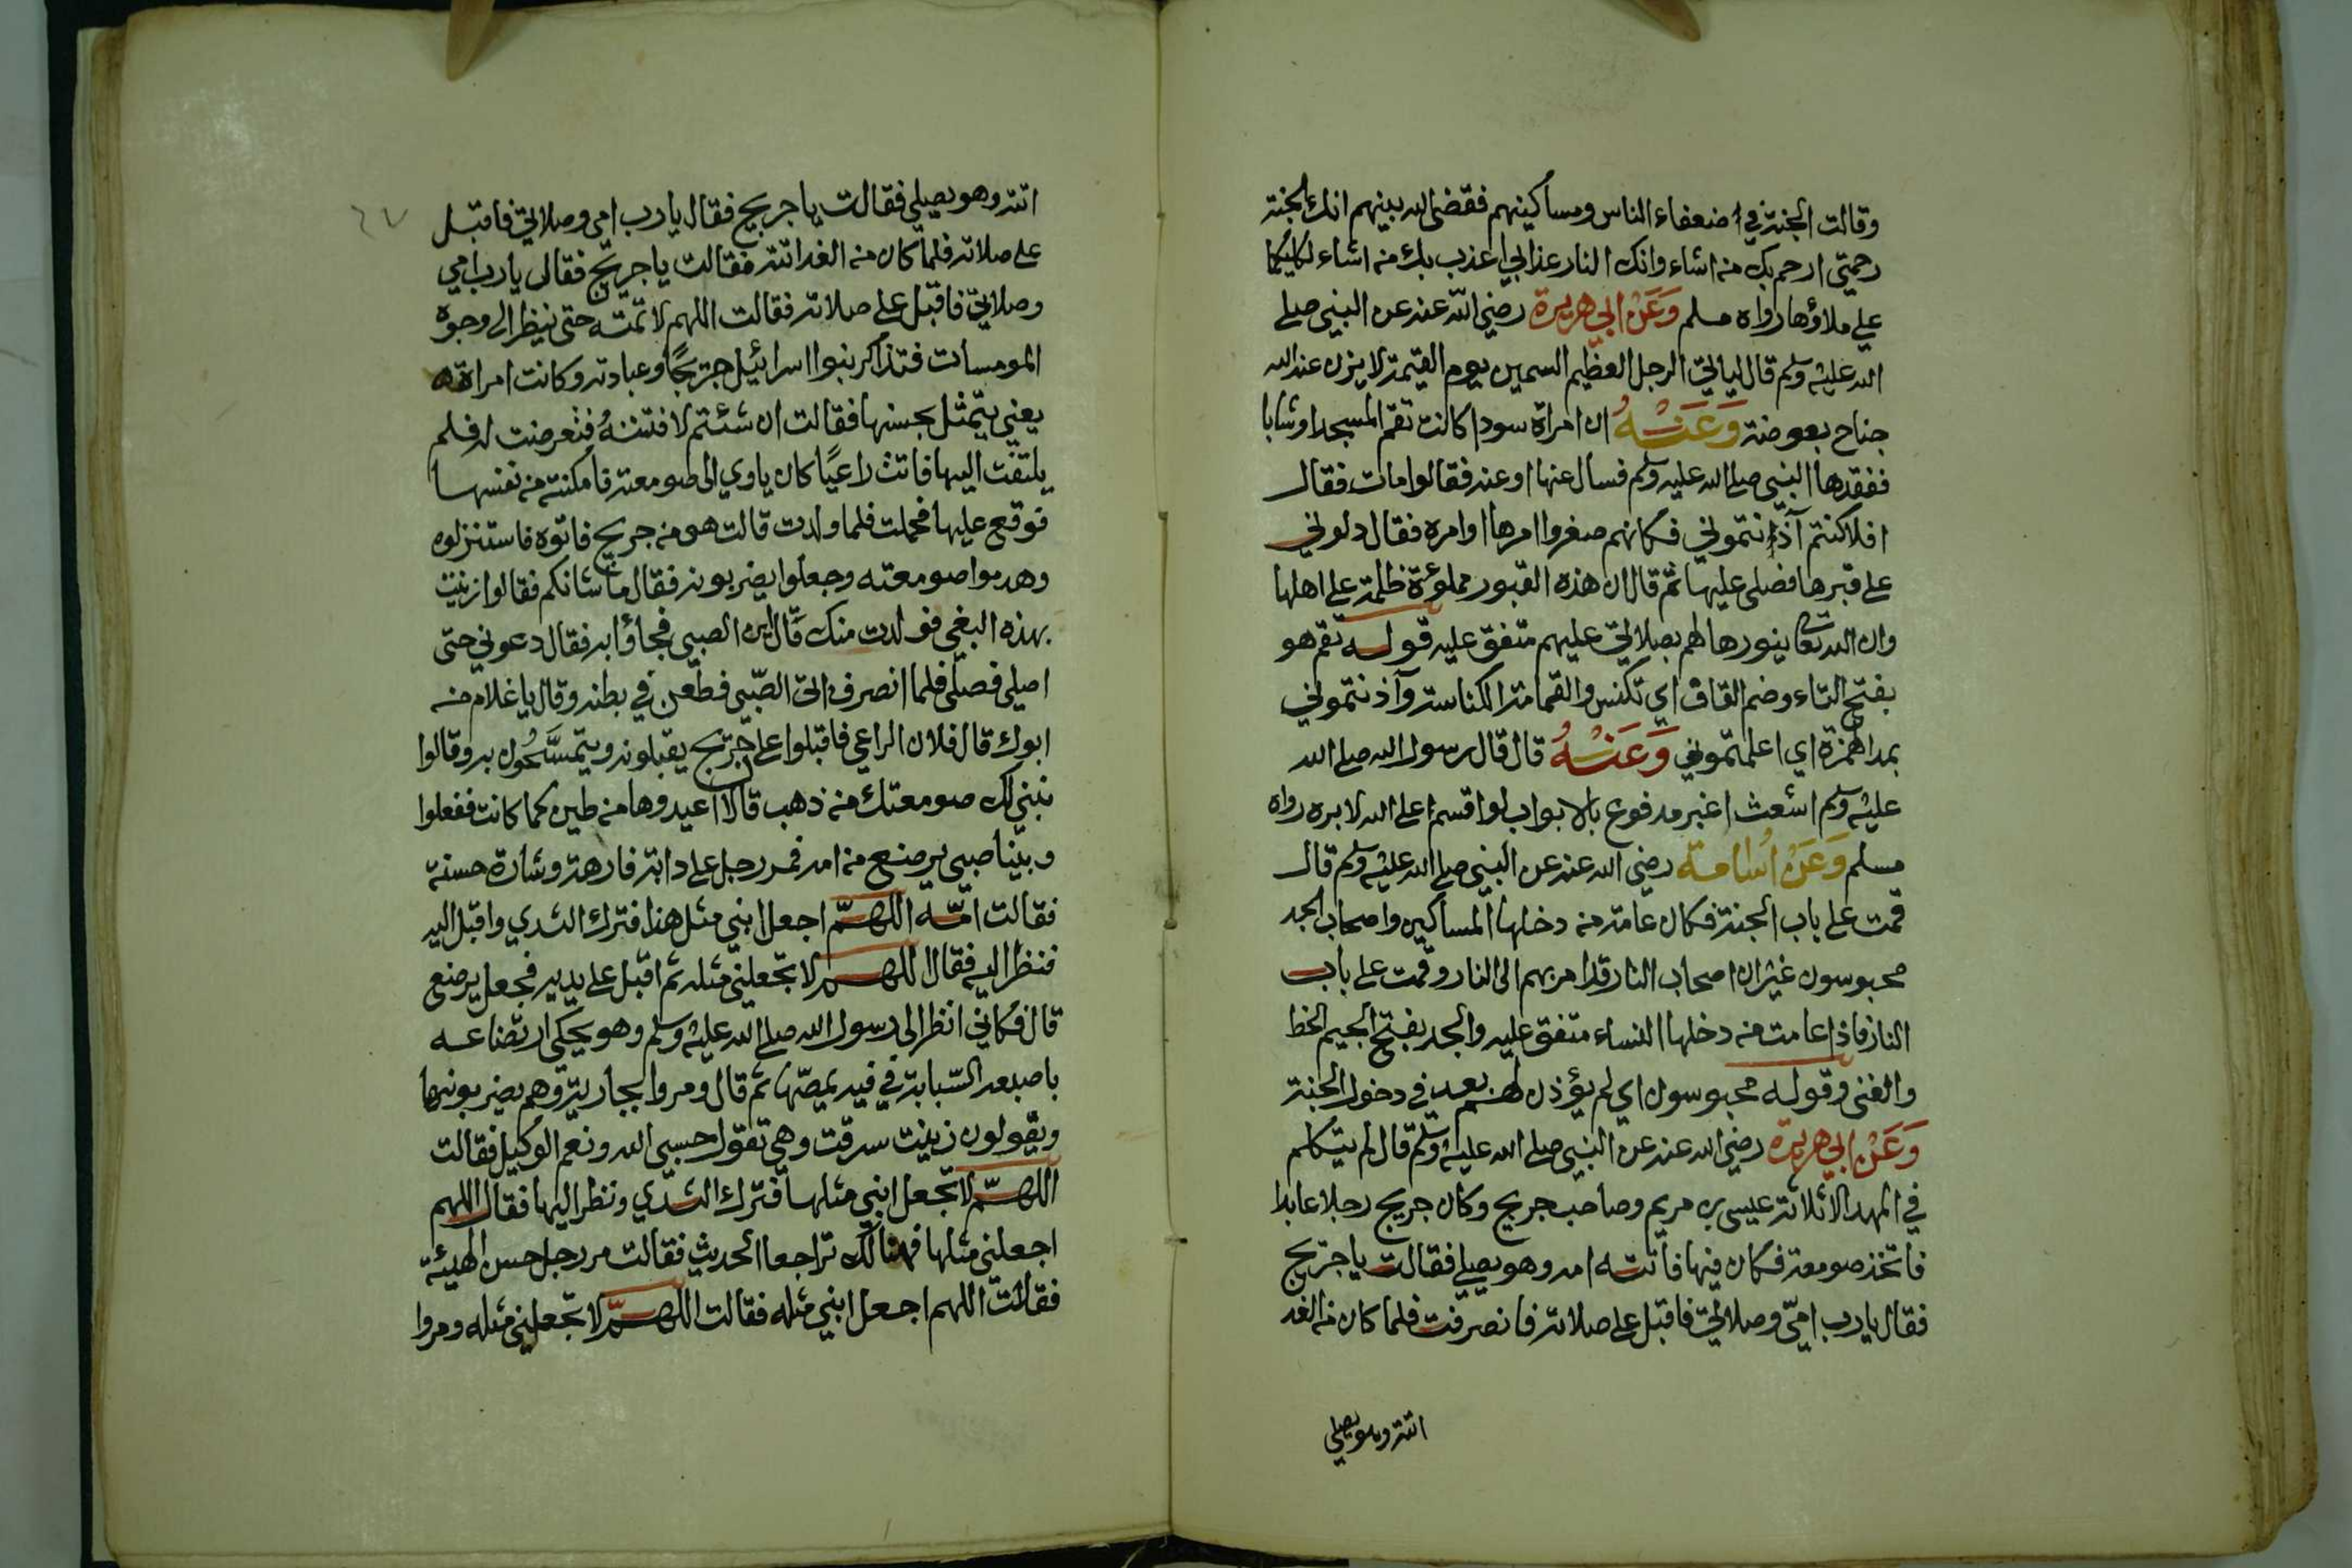 وقالت الجنة في ضعفاء الناس ومساكينهم فقضى الله بينهم انك الجنة
رحمتي ارحم بك من اشاء وانك النار عذابي اعذب بك من اشاء لكليكما
علي ملاؤها رواه مسلم وَعَنْ ابي هريرة رضي الله عنه عن النبي صلى
الله عليه وسلم قال لياتي الرجل العظيم السمين يوم القيمة لا يزن عند الله
جناح بعوضة وَعَنْهُ ان امراة سودا كانت تقم المسجد او شابا
ففقدها النبي صلى الله عليه وسلم فسال عنها او عنه فقالوا مات فقال
افلا كنتم آذنتموني فكانهم صغروا امرها او امره فقال دلوني
على قبرها فصلى عليها ثم قال ان هذه القبور مملوءة ظلمة على اهلها
وان الله تعالى ينورها لهم بصلاتي عليهم متفق عليه قوله تقم هو
بفتح التاء وضم القاف اي تكنس والقمامة الكناسة وآذنتموني
بمد الهمزة اي اعلمتموني وَعَنْهُ قال قال رسول الله صلى الله
عليه وسلم اشعث اغبر مدفوع بالابواب لو اقسم على الله لابره رواه
مسلم وَعَنْ اُسامة رضي الله عنه عن النبي صلى الله عليه وسلم قال
قمت على باب الجنة فكان عامة من دخلها المساكين واصحاب الجد
محبوسون غير ان اصحاب النار قد امر بهم الى النار وقمت على باب
النار فاذا عامة من دخلها النساء متفق عليه والجد بفتح الجيم الحظ
والغنى وقوله محبوسون اي لم يؤذن لهم بعد في دخول الجنة
وَعَنْ ابي هريرة رضي الله عنه عن النبي صلى الله عليه وسلم قال لم يتكلم
في المهد الا ثلاثة عيسى بن مريم وصاحب جريج وكان جريج رجلا عابدا
فاتخذ صومعة فكان فيها فاتته امه وهو يصلي فقالت يا جريج
فقال يا رب امّي وصلاتي فاقبل على صلاته فانصرفت فلما كان من الغد
اتته وهو يصلي
اتته وهو يصلي فقالت يا جريج فقال يا رب امي وصلاتي فاقبل
على صلاته فلما كان من الغد اتته فقالت يا جريج فقال يا رب امي
وصلاتي فاقبل على صلاته فقالت اللهم لا تمته حتى ينظر الى وجوه
المومسات فتذاكر بنوا اسرائيل جريجًا وعبادته وكانت امراة
يعني يتمثل بحسنها فقالت ان شئتم لافتننهُ فتعرضت له فلم
يلتفت اليها فاتت راعيًا كان ياوي الى صومعته فامكنته من نفسها
فوقع عليها فحملت فلما ولدت قالت هو من جريج فاتوه فاستنزلوه
وهدموا صومعته وجعلوا يضربونه فقال ما شانكم فقالوا زنيت
بهذه البغي فولدت منك قال اين الصبي فجاؤا به فقال دعوني حتى
اصلي فصلّى فلما انصرف اتى الصّبي فطعن في بطنه وقال يا غلام من
ابوك قال فلان الراعي فاقبلوا على جريج يقبلونه ويتمسَّحُون به وقالوا
نبني لك صومعتك من ذهب قال لا اعيدوها من طين كما كانت ففعلوا
وبينا صبي يرضع من امه فمر رجل على دابة فارهة وشارة حسنة
فقالت امّه اللهمّ اجعل ابني مثل هذا فترك الثدي واقبل اليه
فنظر اليه فقال اللهم لا تجعلني مثله ثم اقبل على يديه فجعل يرضع
قال فكاني انظر الى رسول الله صلى الله عليه وسلم وهو يحكي ارتضاعه
باصبعه السّبابة في فيه يمصّها ثم قال ومروا بجارية وهم يضربونها
ويقولون زنيت سرقت وهي تقول حسبي الله ونعم الوكيل فقالت
اللهمّ لا تجعل ابني مثلها فترك الثدي ونظر اليها فقال اللهم
اجعلني مثلها فهنالك تراجعا الحديث فقالت مر رجل حسن الهيئة
فقالت اللهم اجعل ابني مثله فقالت اللهمّ لا تجعلني مثله ومروا